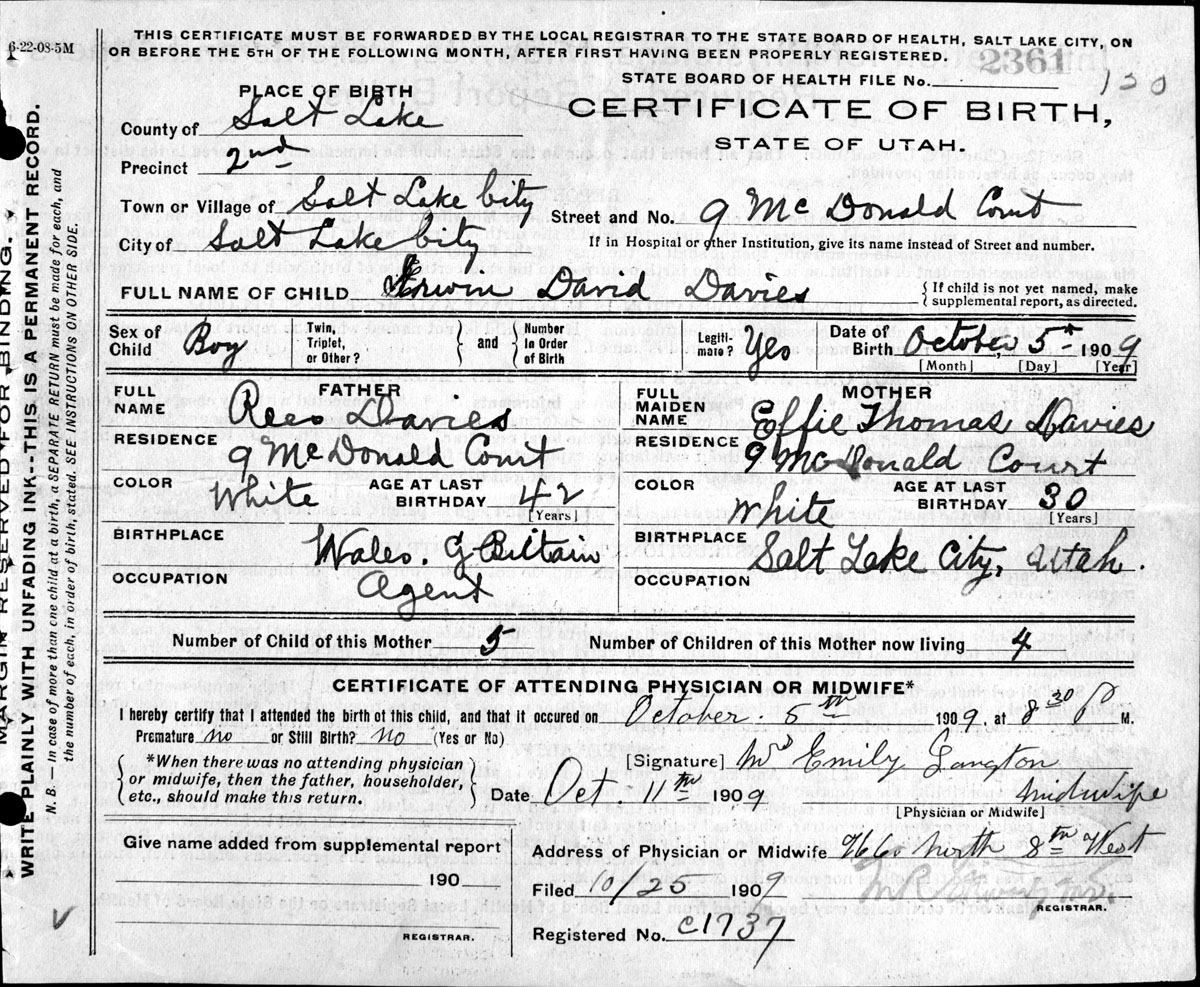 6-22-08-5M
THIS CERTIFICATE MUST BE FORWARDED BY THE LOCAL REGISTRAR TO THE STATE BOARD OF HEALTH, SALT LAKE CITY, ON
OR BEFORE THE 5TH OF THE FOLLOWING MONTH, AFTER FIRST HAVING BEEN PROPERLY REGISTERED.
2361
STATE BOARD OF HEALTH FILE No. 130
PLACE OF BIRTH
CERTIFICATE OF BIRTH,
STATE OF UTAH.
County of Salt Lake
Precinct 2nd
Town or Village of Salt Lake City
Street and No. 9 Mc Donald Court
City of Salt Lake City
If in Hospital or other Institution, give its name instead of Street and number.
FULL NAME OF CHILD Erwin David Davies
{ If child is not yet named, make
supplemental report, as directed.
Sex of Child Boy
Twin, Triplet, or Other?
and
Number in Order of Birth
Legiti-mate? Yes
Date of Birth October, 5th 1909
[Month] [Day] [Year]
FATHER
FULL NAME Rees Davies
RESIDENCE 9 McDonald Court
COLOR White
AGE AT LAST BIRTHDAY 42
[Years]
BIRTHPLACE Wales. G Bittain
OCCUPATION Agent
MOTHER
FULL MAIDEN NAME Effie Thomas Davies
RESIDENCE 9 McDonald Court
COLOR White
AGE AT LAST BIRTHDAY 30
[Years]
BIRTHPLACE Salt Lake City, Utah.
OCCUPATION
Number of Child of this Mother 5
Number of Children of this Mother now living 4
CERTIFICATE OF ATTENDING PHYSICIAN OR MIDWIFE*
I hereby certify that I attended the birth of this child, and that it occured on October. 5th 1909, at 8 30 P M.
Premature no or Still Birth? no (Yes or No)
{ *When there was no attending physician
or midwife, then the father, householder,
etc., should make this return. }
[Signature] Mrs Emily Langton
Date Oct. 11th 1909
Midwife
[Physician or Midwife]
Give name added from supplemental report
190
REGISTRAR.
Address of Physician or Midwife 966 North 8th West
Filed 10/25 1909
REGISTRAR.
Registered No. c1737
MARGIN RESERVED FOR BINDING.
WRITE PLAINLY WITH UNFADING INK--THIS IS A PERMANENT RECORD.
N. B. — In case of more than one child at a birth, a SEPARATE RETURN must be made for each, and
the number of each, in order of birth, stated. SEE INSTRUCTIONS ON OTHER SIDE.